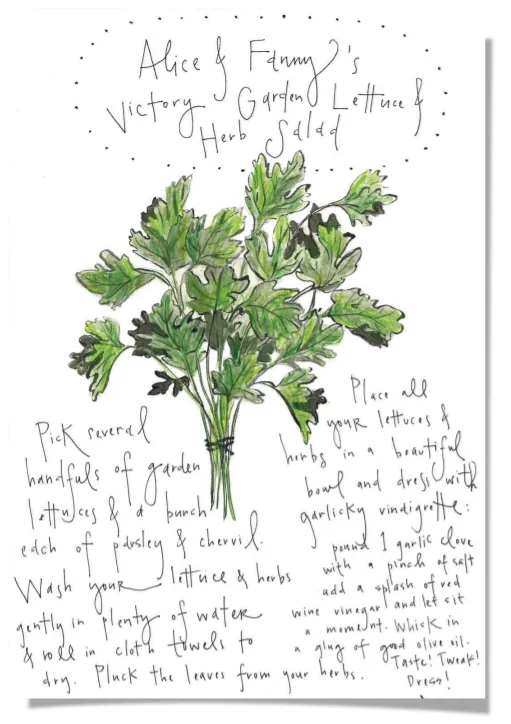 Alice & Fanny's
Victory Garden Lettuce &
Herb Salad
Pick several
handfuls of garden
lettuces & a bunch
each of parsley & chervil.
Wash your lettuce & herbs
gently in plenty of water
& roll in cloth towels to
dry. Pluck the leaves from your herbs.
Place all
your lettuces &
herbs in a beautiful
bowl and dress with
garlicky vinaigrette:
pound 1 garlic clove
with a pinch of salt
add a splash of red
wine vinegar and let sit
a moment. Whisk in
a glug of good olive oil.
Taste! Tweak!
Dress!